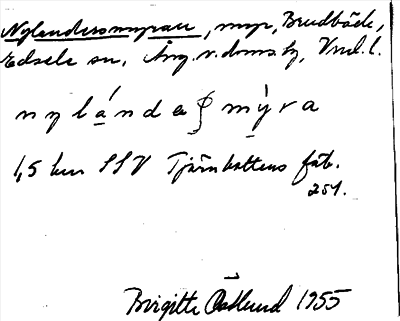 Nylandersmyran, myr, Brudbäck,
Edsele sn, Ång. v. doms. h, Vnd. l.
nylándeʂmỳra
1,5 km SSV Tjärnbottens fäb.
251.
Birgitte Östlund 1955